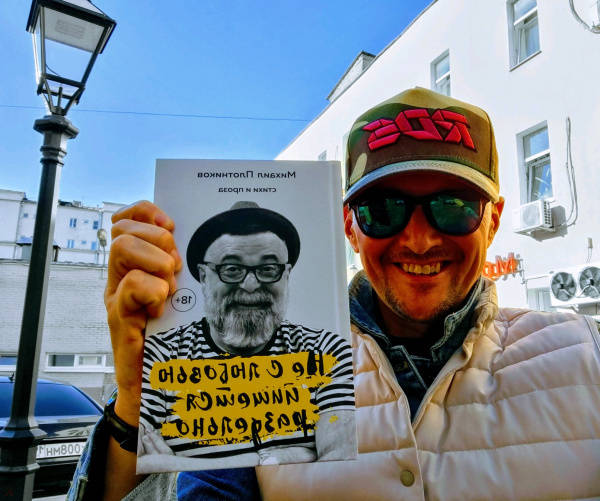 Михаил Плотников
стихи и проза
18+
Не с любовью
пишется
раздельно